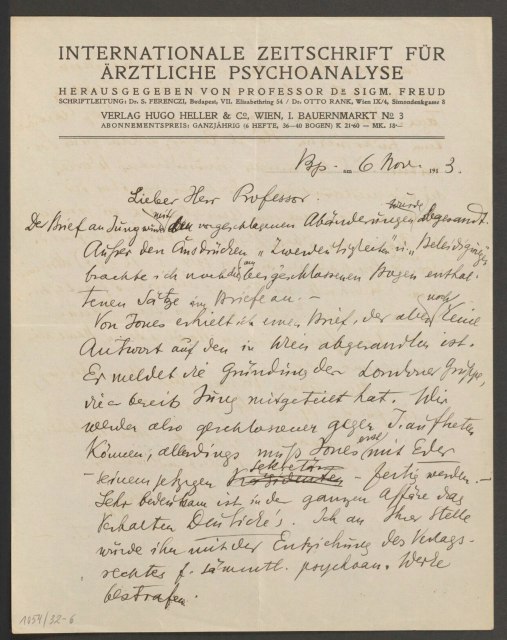 INTERNATIONALE ZEITSCHRIFT FÜR
ÄRZTLICHE PSYCHOANALYSE
HERAUSGEGEBEN VON PROFESSOR DR SIGM. FREUD
SCHRIFTLEITUNG: Dr. S. FERENCZI, Budapest, VII. Elisabethring 54 / Dr. OTTO RANK, Wien IX/4, Simondenkgasse 8
VERLAG HUGO HELLER & Co, WIEN, I. BAUERNMARKT No 3
ABONNEMENTSPREIS: GANZJÄHRIG (6 HEFTE, 36—40 BOGEN) K 21·60 = MK. 18·—
Bp. am 6 Nov. 1913.
Lieber Herr Professor.
Der Brief an Jung wurde mit den vorgeschlagenen Abänderungen abgesandt.
Außer den Ausdrücken „Zweideutigkeiten" u. „Beleidigung"
brachte ich noch die am beigeschlossenen Bogen enthal-
tenen Sätze im Briefe an. —
Von Jones erhielt ich einen Brief, der aber noch keine
Antwort auf den in Wien abgesandten ist.
Er meldet die Gründung der Londoner Gruppe,
die er bereits Jung mitgeteilt hat. Wir
werden also geschlossener gegen J. auftreten
können, allerdings muß Jones erst mit Eder
— seinem jetzigen Präsidenten Sekretär — fertig werden. —
Sehr bedeutsam ist in der ganzen Affäre das
Verhalten Deuticke's. Ich an Ihrer Stelle
würde ihn mit der Entziehung des Verlags-
rechtes f. sämmtl. psychoan. Werke
bestrafen.
1054/32-6